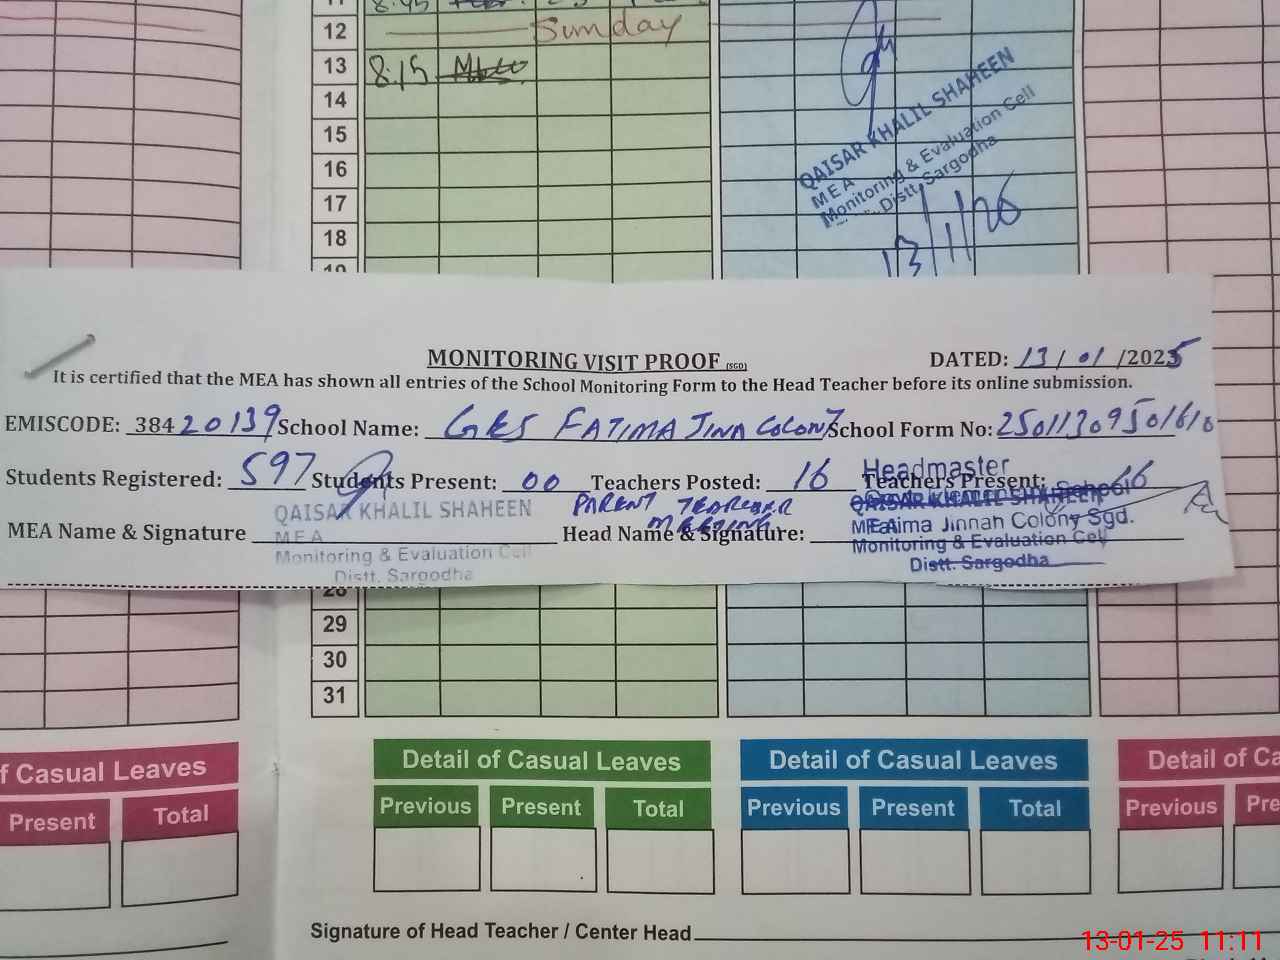 11 8.45
12 Sunday
13 8.15
14
15
16
17
18
19
QAISAR KHALIL SHAHEEN
MEA
Monitoring & Evaluation Cell
Distt. Sargodha
13/1/26
MONITORING VISIT PROOF (SGD)
DATED: 13/01/2025
It is certified that the MEA has shown all entries of the School Monitoring Form to the Head Teacher before its online submission.
EMISCODE: 38420139 School Name: GES FATIMA JINA COLONY School Form No:
Students Registered: 597 Students Present: 00 Teachers Posted: 16 Teachers Present: 16
PARENT TEACHER MEETING
MEA Name & Signature
QAISAR KHALIL SHAHEEN
MEA
Monitoring & Evaluation Cell
Distt. Sargodha
Head Name & Signature:
Headmaster
School
Jinnah Colony Sgd.
QAISAR KHALIL SHAHEEN
MEA
Monitoring & Evaluation Cell
Distt. Sargodha
28
29
30
31
f Casual Leaves
Present Total
Detail of Casual Leaves
Previous Present Total
Detail of Casual Leaves
Previous Present Total
Detail of Ca
Previous Pre
Signature of Head Teacher / Center Head
13-01-25 11:11